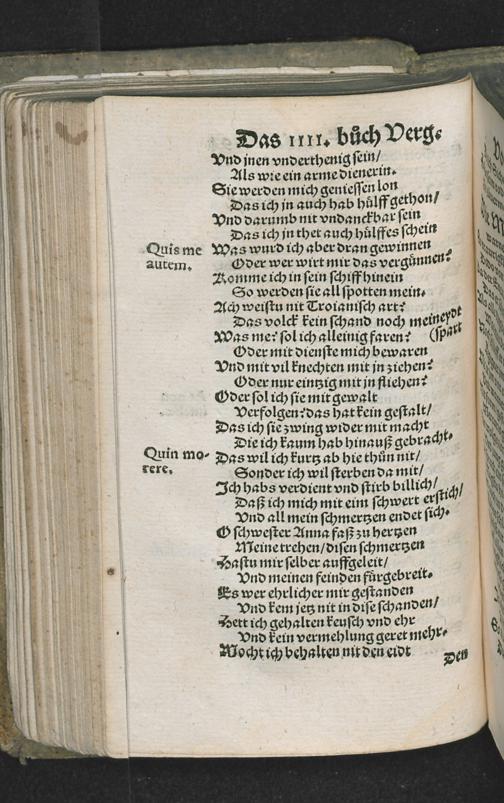 Das IIII. bůch Verg⸗
Vnd jnen vnderthenig sein/
Als wie ein arme dienerin.
Sie werden mich geniessen lon
Das ich jn auch hab hülff gethon/
Vnd darumb nit vndanckbar sein
Das ich jn thet auch hülffes schein
Quis me autem.
Was wurd ich aber dran gewinnen
Oder wer wirt mir das vergünnen?
Komme ich in sein schiff hinein
So werden sie all spotten mein.
Ach weistu nit Troianisch art?
Das volck kein schand noch meineydt (spart
Was me? sol ich alleinig faren?
Oder mit dienste mich bewaren
Vnd mit vil knechten mit jn ziehen?
Oder nur eintzig mit jn fliehen?
Oder sol ich sie mit gewalt
Verfolgen? das hat kein gestalt/
Das ich sie zwing wider mit macht
Die ich kaum hab hinauß gebracht.
Quin morere.
Das wil ich kurtz ab hie thůn nit/
Sonder ich wil sterben da mit/
Ich habs verdient vnd stirb billich/
Daß ich mich mit eim schwert erstich/
Vnd all mein schmertzen endet sich.
O schwester Anna faß zu hertzen
Meine trehen/ disen schmertzen
Hastu mir selber auffgeleit/
Vnd meinen feinden fürgebreit.
Es wer ehrlicher mir gestanden
Vnd kem jetz nit in dise schanden/
Hett ich gehalten keusch vnd ehr
Vnd kein vermehlung geret mehr.
Mocht ich behalten nit den eidt
Den